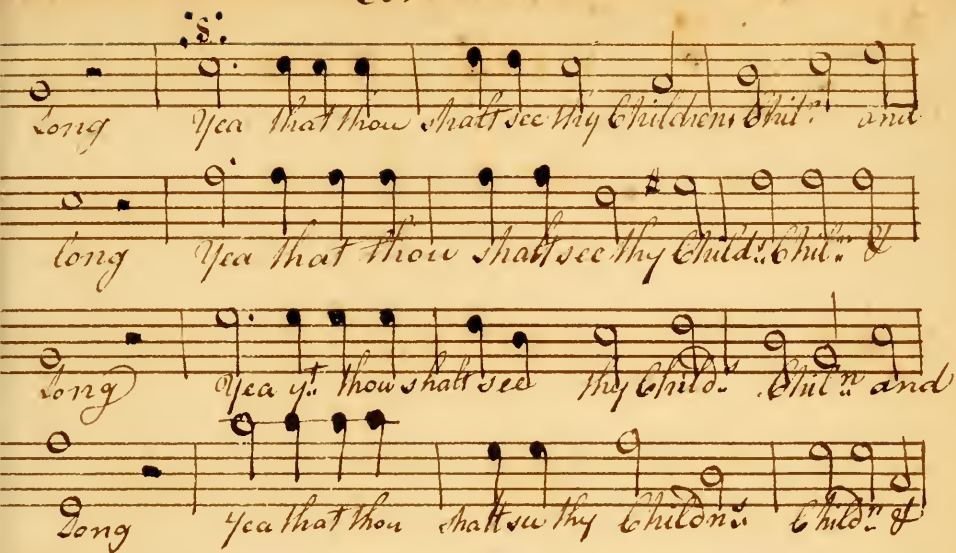 :S:
Long Yea that thou shalt see thy Childrens Chil:n and
long Yea that thou shalt see thy Child:s Chil:n &
Long Yea yt. thou shalt see thy Child:s Chil:n and
Long Yea that thou shalt see thy Childn:s Child:n &